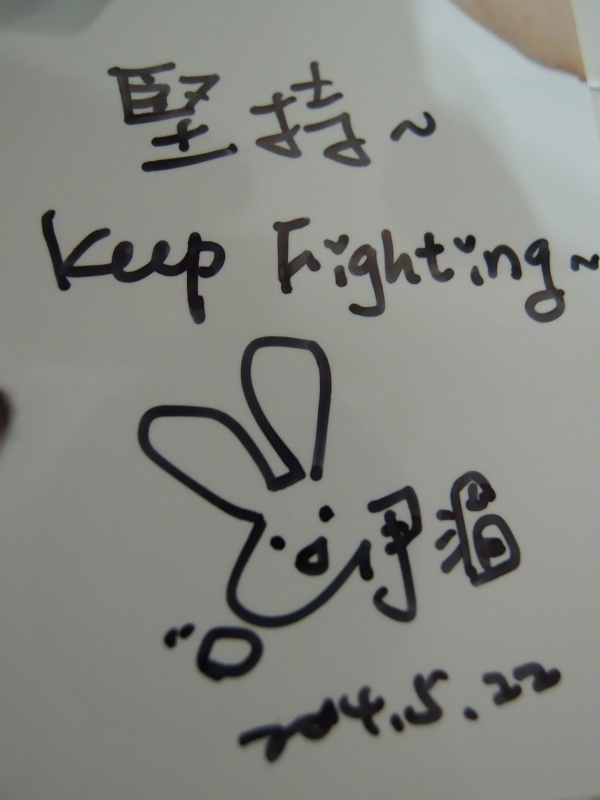 堅持~
Keep Fighting~
2014.5.22